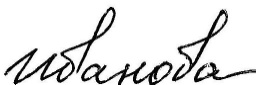 Иванова